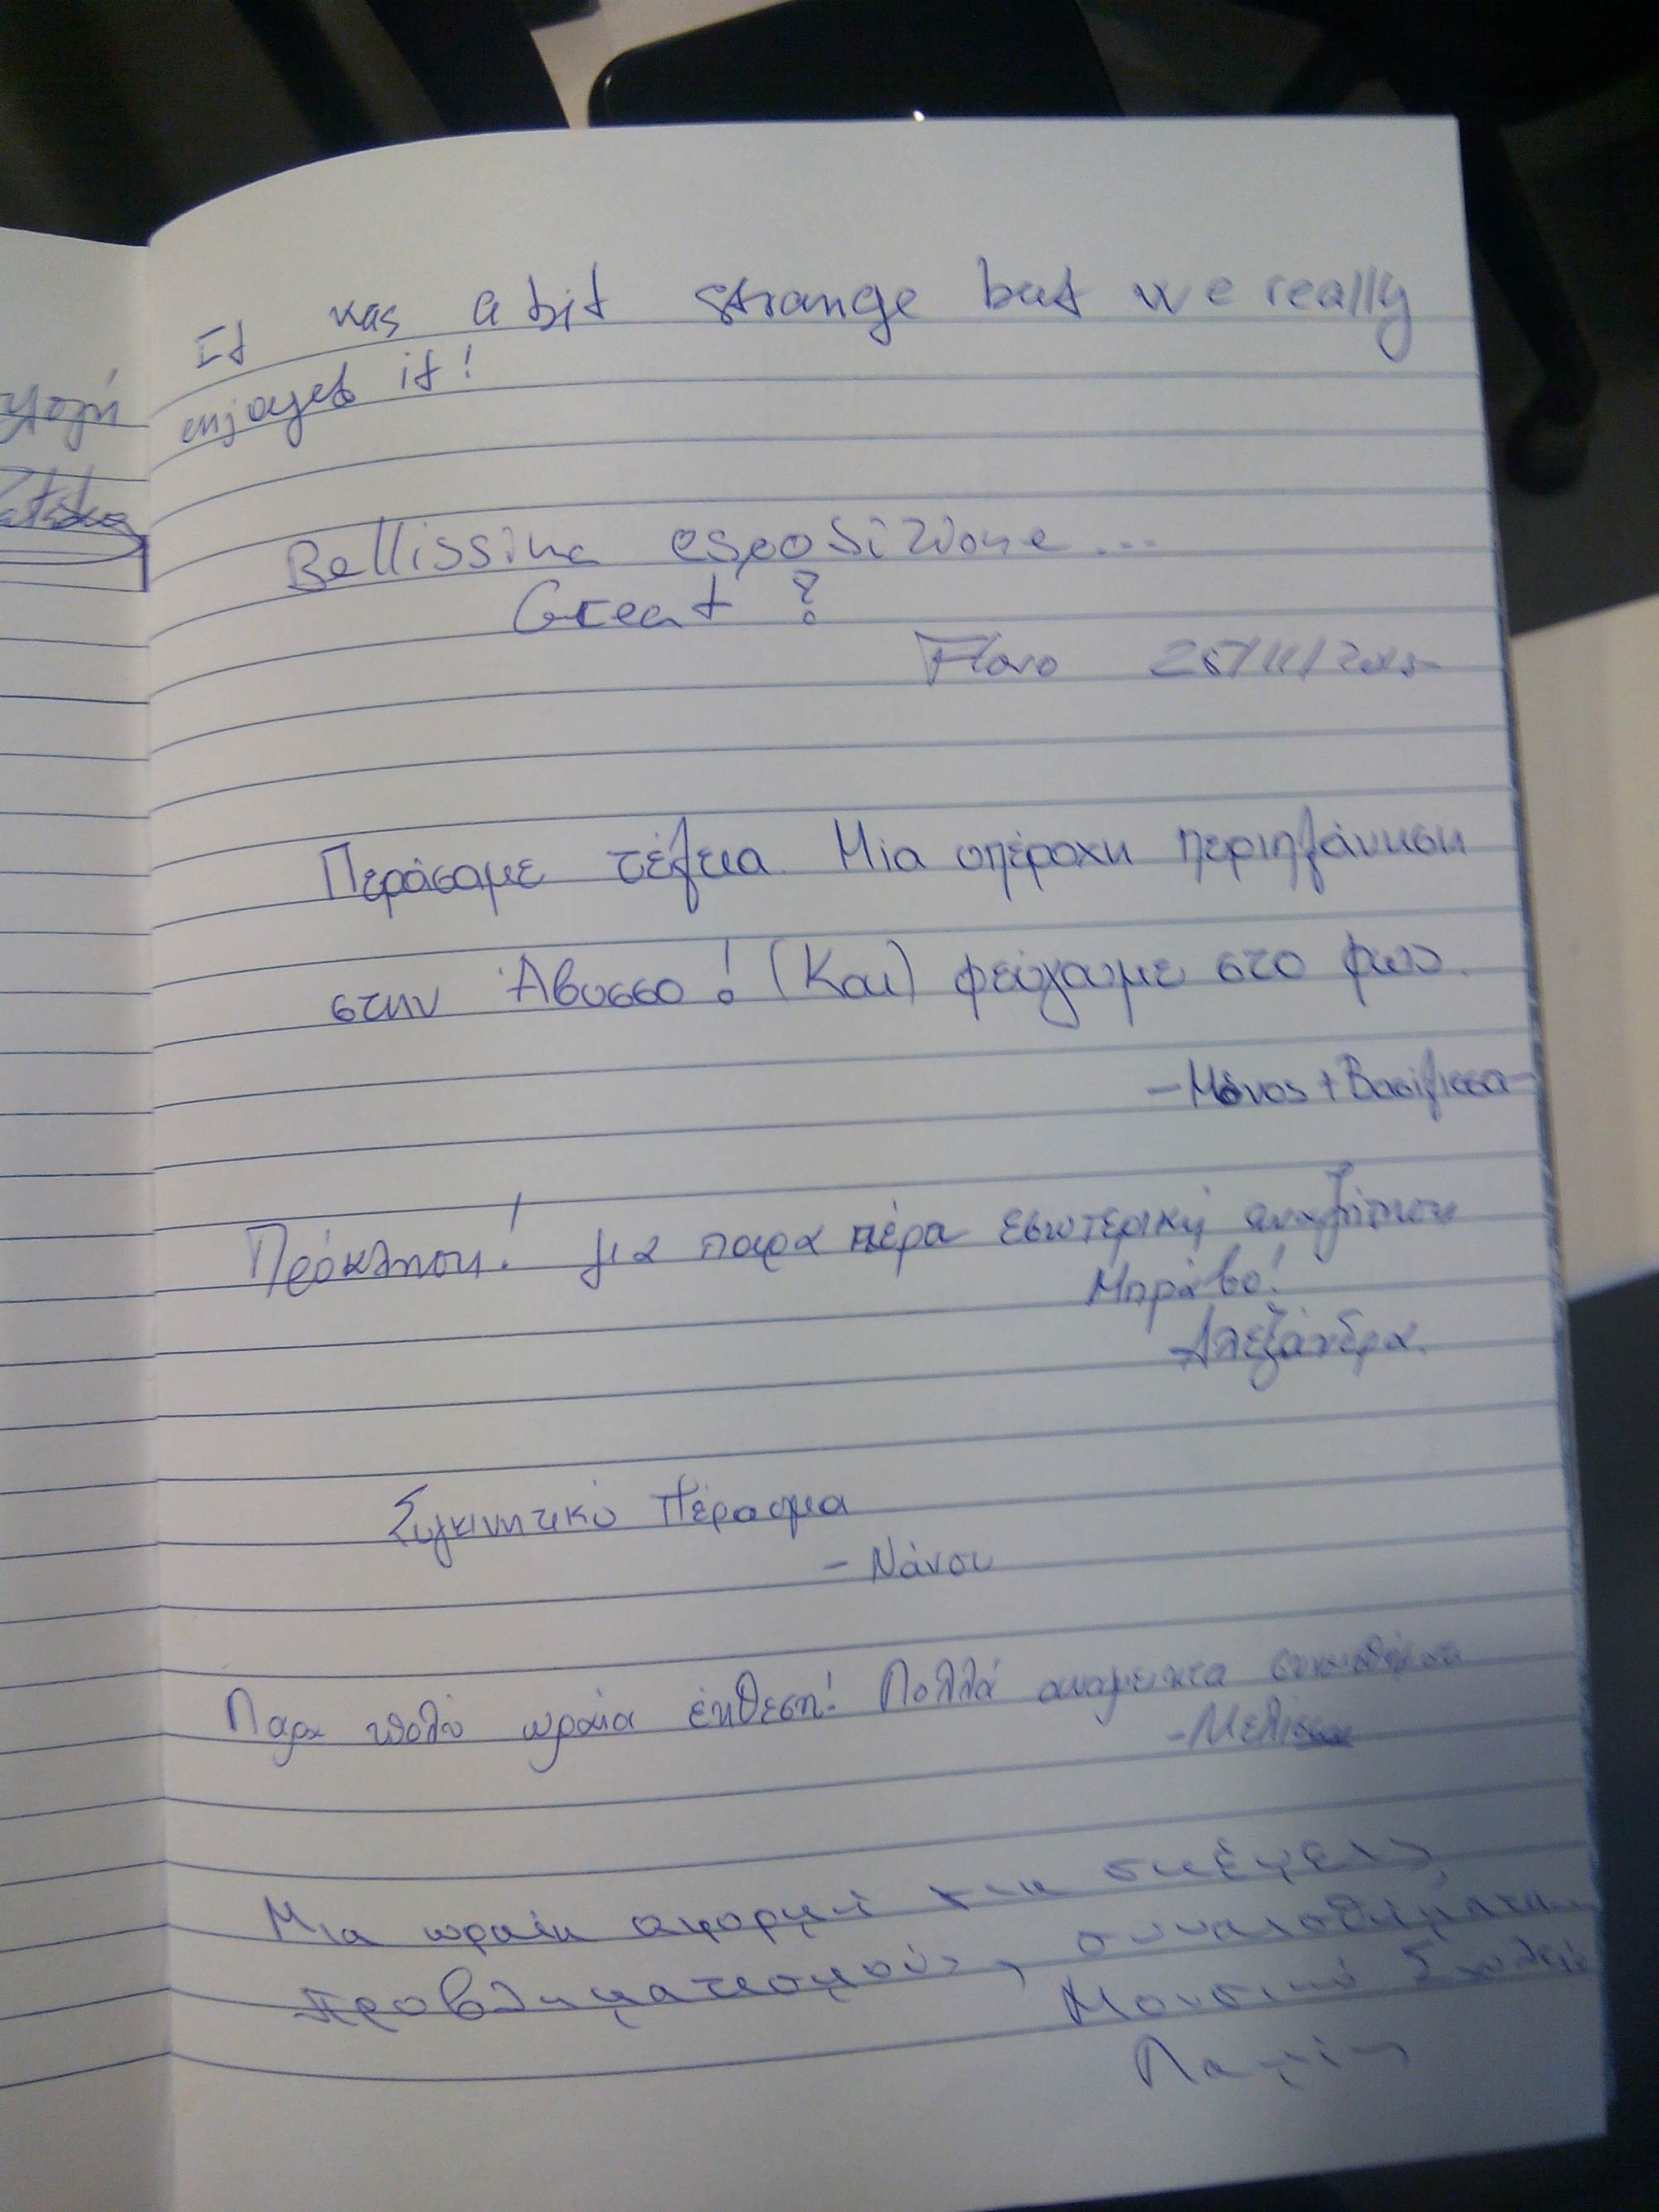 It was a bit strange but we really
enjoyed it!
Bellissima esposizione...
Great!
25/11/2015
Περάσαμε τέλεια. Μία υπέροχη περιπλάνηση
στην Άβυσσο! (Και) φεύγουμε στο φως.
- Μάνος + Βασίλισσα -
Πρόκληση! για παρα πέρα εσωτερική αναζήτηση
Μπράβο!
Αλεξάνδρα.
Συγκινητικό πέρασμα
- Νάνσυ
Παρα πολύ ωραία έκθεση! Πολλά αναμεικτα συναισθήματα
- Μελίσσα
Μια ωραία αφορμή για σκέψεις,
προβληματισμούς, συναισθήματα
Μουσικό Σχολείο